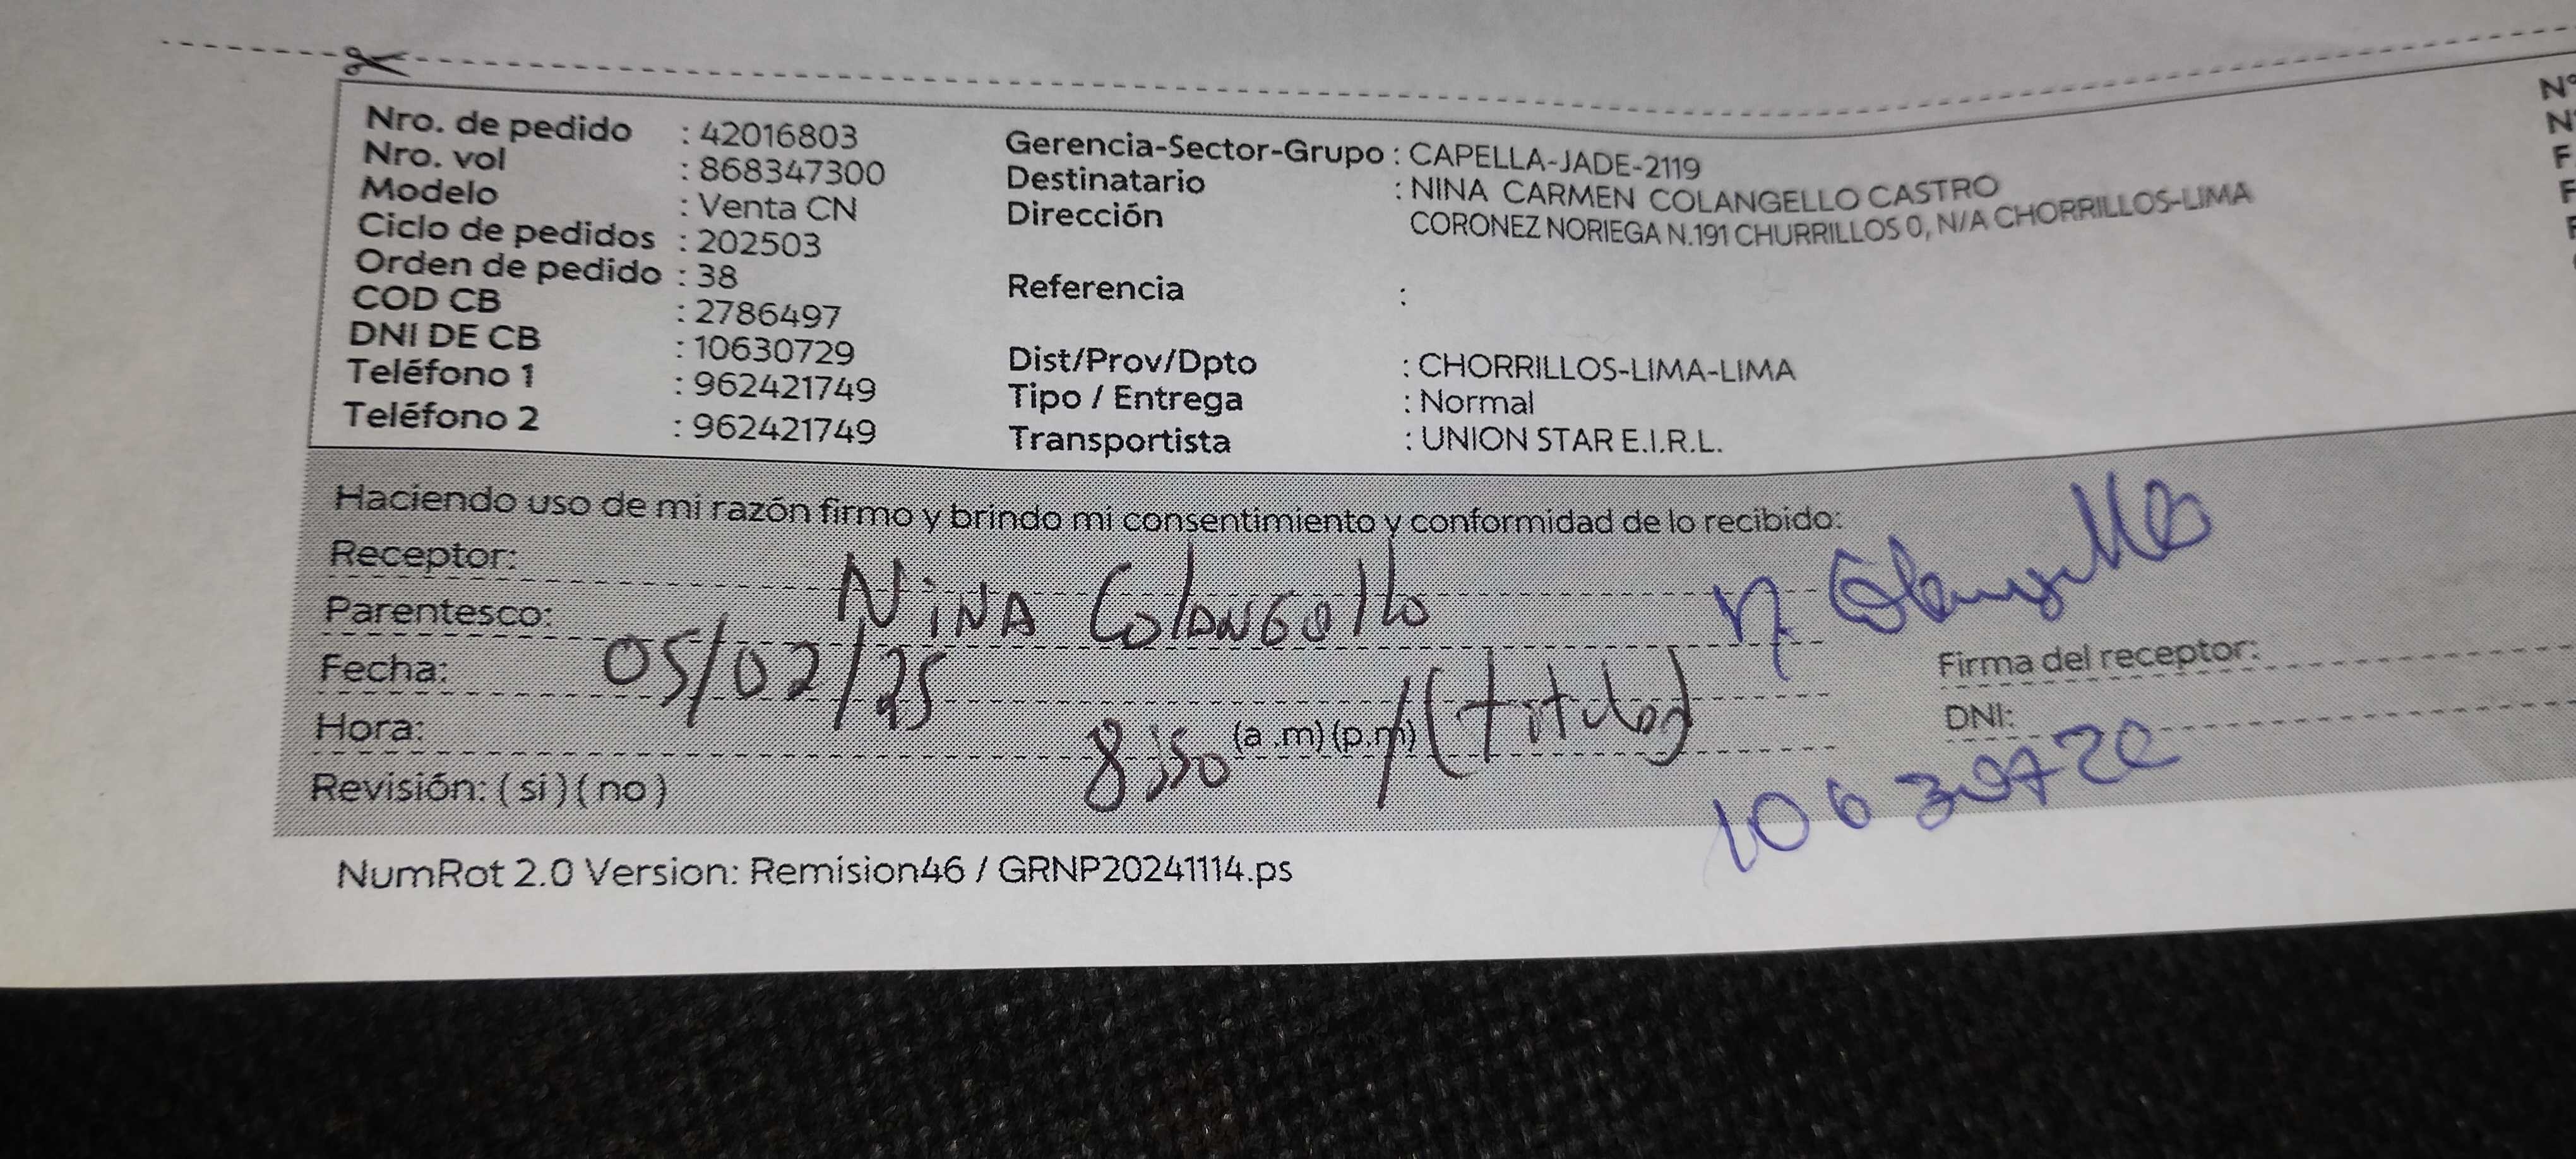 Nro. de pedido : 42016803
Nro. vol : 868347300
Modelo : Venta CN
Ciclo de pedidos : 202503
Orden de pedido : 38
COD CB : 2786497
DNI DE CB : 10630729
Teléfono 1 : 962421749
Teléfono 2 : 962421749
Gerencia-Sector-Grupo : CAPELLA-JADE-2119
Destinatario : NINA CARMEN COLANGELLO CASTRO
Dirección CORONEZ NORIEGA N.191 CHURRILLOS 0, N/A CHORRILLOS-LIMA
Referencia :
Dist/Prov/Dpto : CHORRILLOS-LIMA-LIMA
Tipo / Entrega : Normal
Transportista : UNION STAR E.I.R.L.
Nº
Haciendo uso de mi razón firmo y brindo mi consentimiento y conformidad de lo recibido:
Receptor: NINA Colangello
Parentesco:
Fecha: 05/02/25
Hora: 8:50 (a.m)(p.m) / (titular)
Revisión: (si)(no)
N. Colangello
Firma del receptor:
DNI:
10630729
NumRot 2.0 Version: Remision46 / GRNP20241114.ps